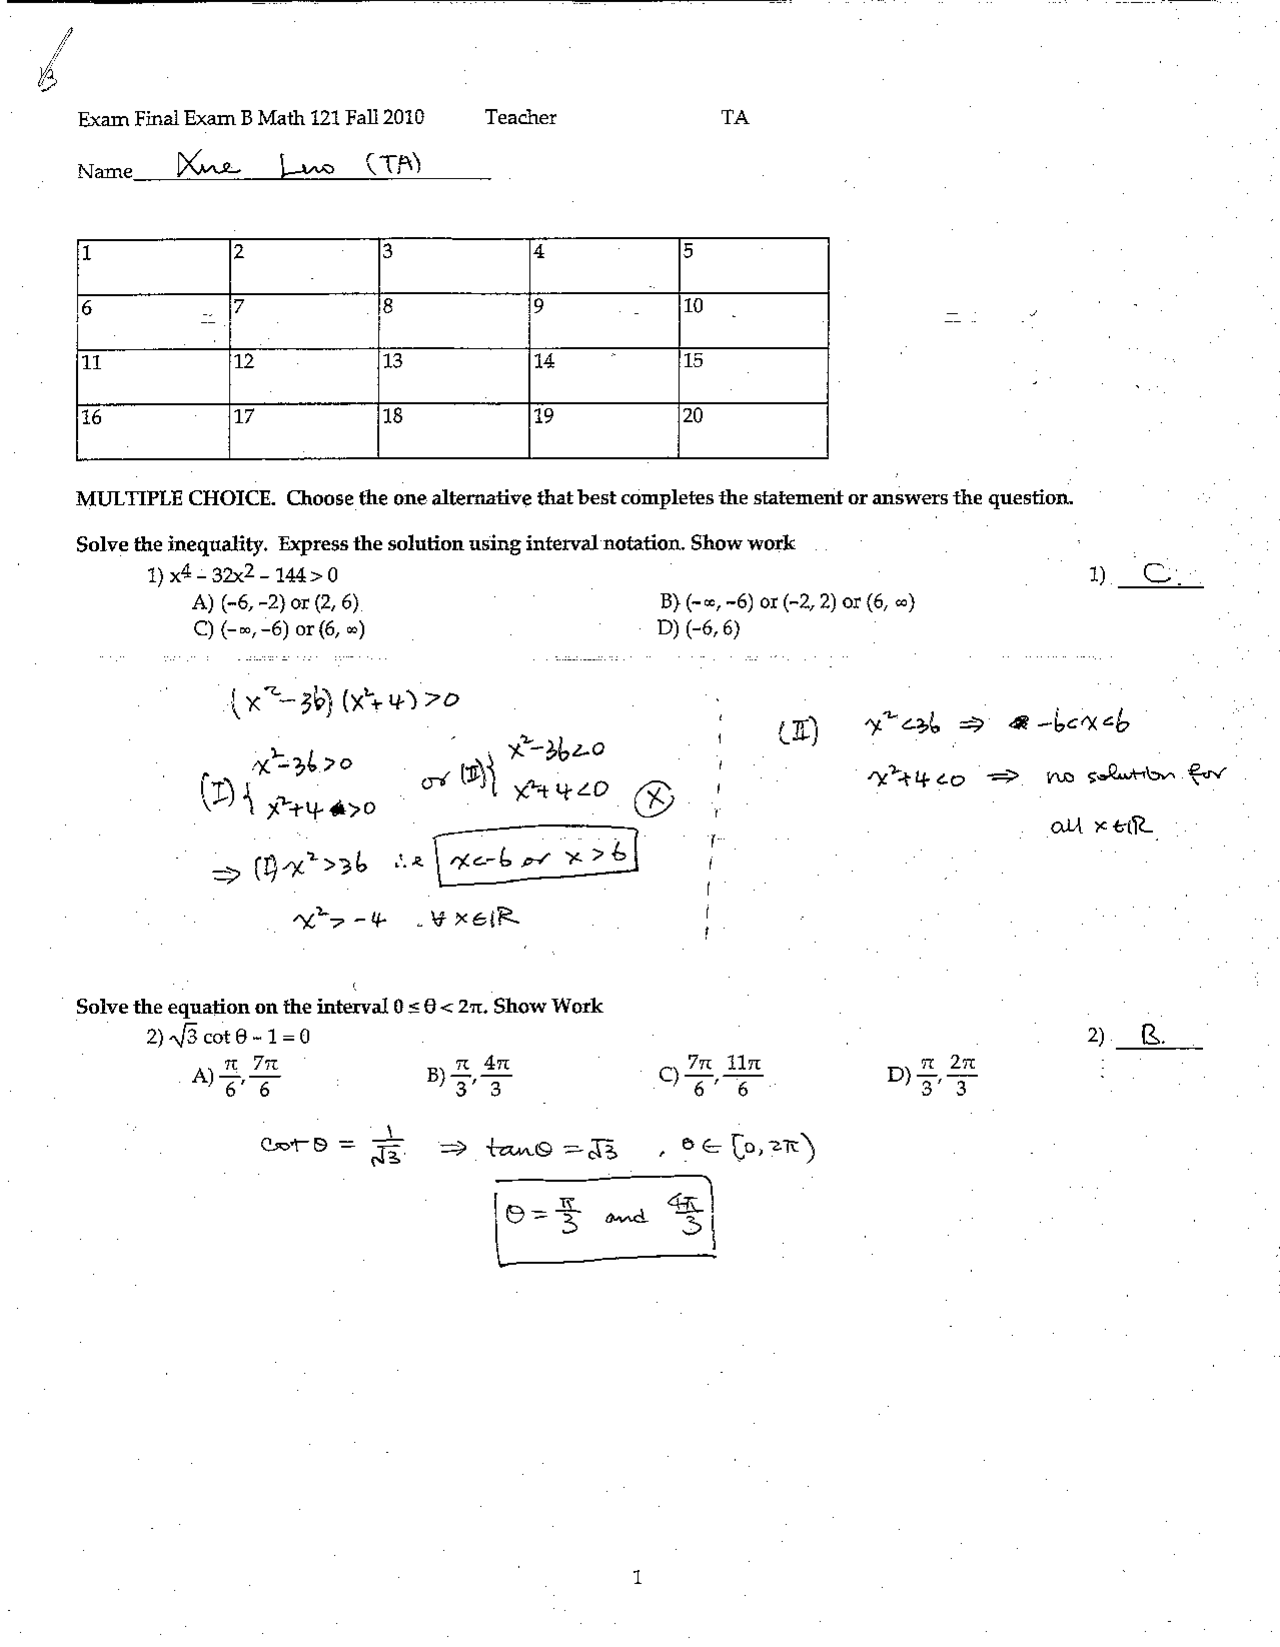 B
Exam Final Exam B Math 121 Fall 2010 Teacher TA
Name Xue Luo (TA)
1 2 3 4 5
6 7 8 9 10
11 12 13 14 15
16 17 18 19 20
MULTIPLE CHOICE. Choose the one alternative that best completes the statement or answers the question.
Solve the inequality. Express the solution using interval notation. Show work
1) x⁴ – 32x² – 144 > 0 1) C.
A) (–6, –2) or (2, 6) B) (–∞, –6) or (–2, 2) or (6, ∞)
C) (–∞, –6) or (6, ∞) D) (–6, 6)
(x²–36)(x²+4)>0
(I) { x²–36>0 or (II) { x²–36<0
x²+4>0 x²+4<0 (X)
⇒ (I) x²>36 i.e x<-6 or x>6
x²>-4 ∀x∈ℝ
(II) x²<36 ⇒ -6<x<6
x²+4<0 ⇒ no solution for
all x∈ℝ
Solve the equation on the interval 0 ≤ θ < 2π. Show Work
2) √3 cot θ – 1 = 0 2) B.
A) π/6, 7π/6 B) π/3, 4π/3 C) 7π/6, 11π/6 D) π/3, 2π/3
cot θ = 1/√3 ⇒ tanθ = √3 , θ ∈ [0, 2π)
θ = π/3 and 4π/3
1